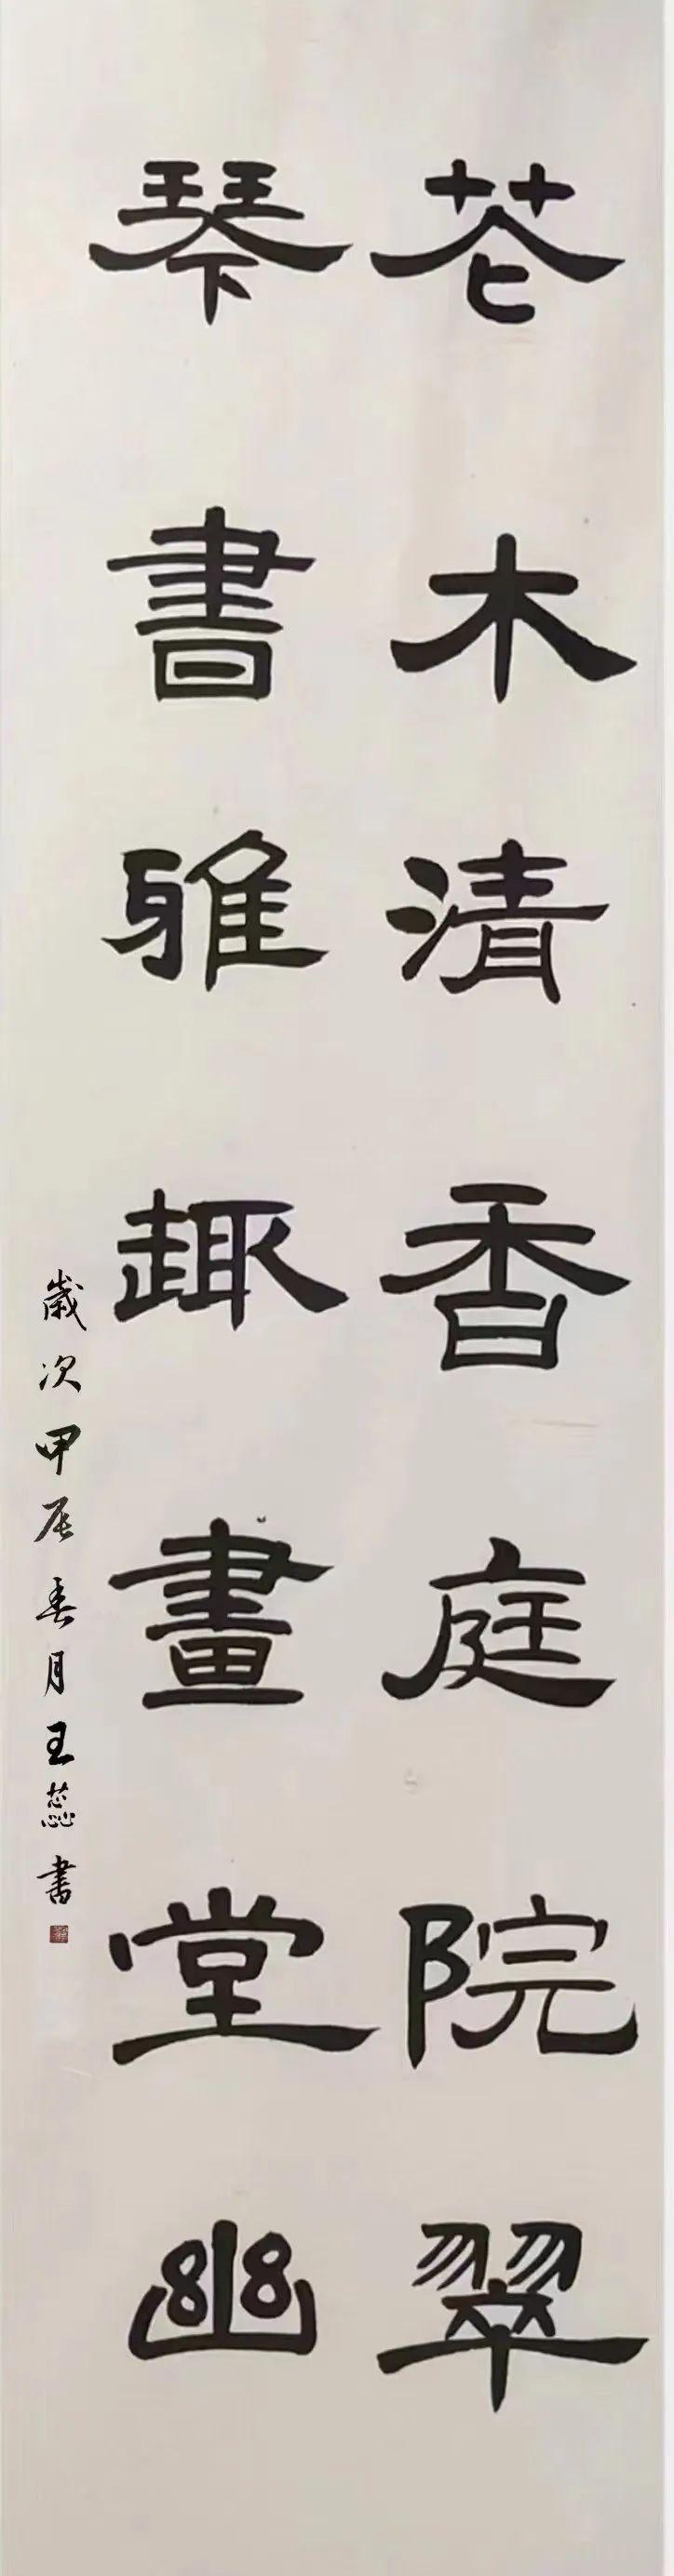 花木清香庭院翠
琴書雅趣畫堂幽
歲次甲辰春月王蕊書